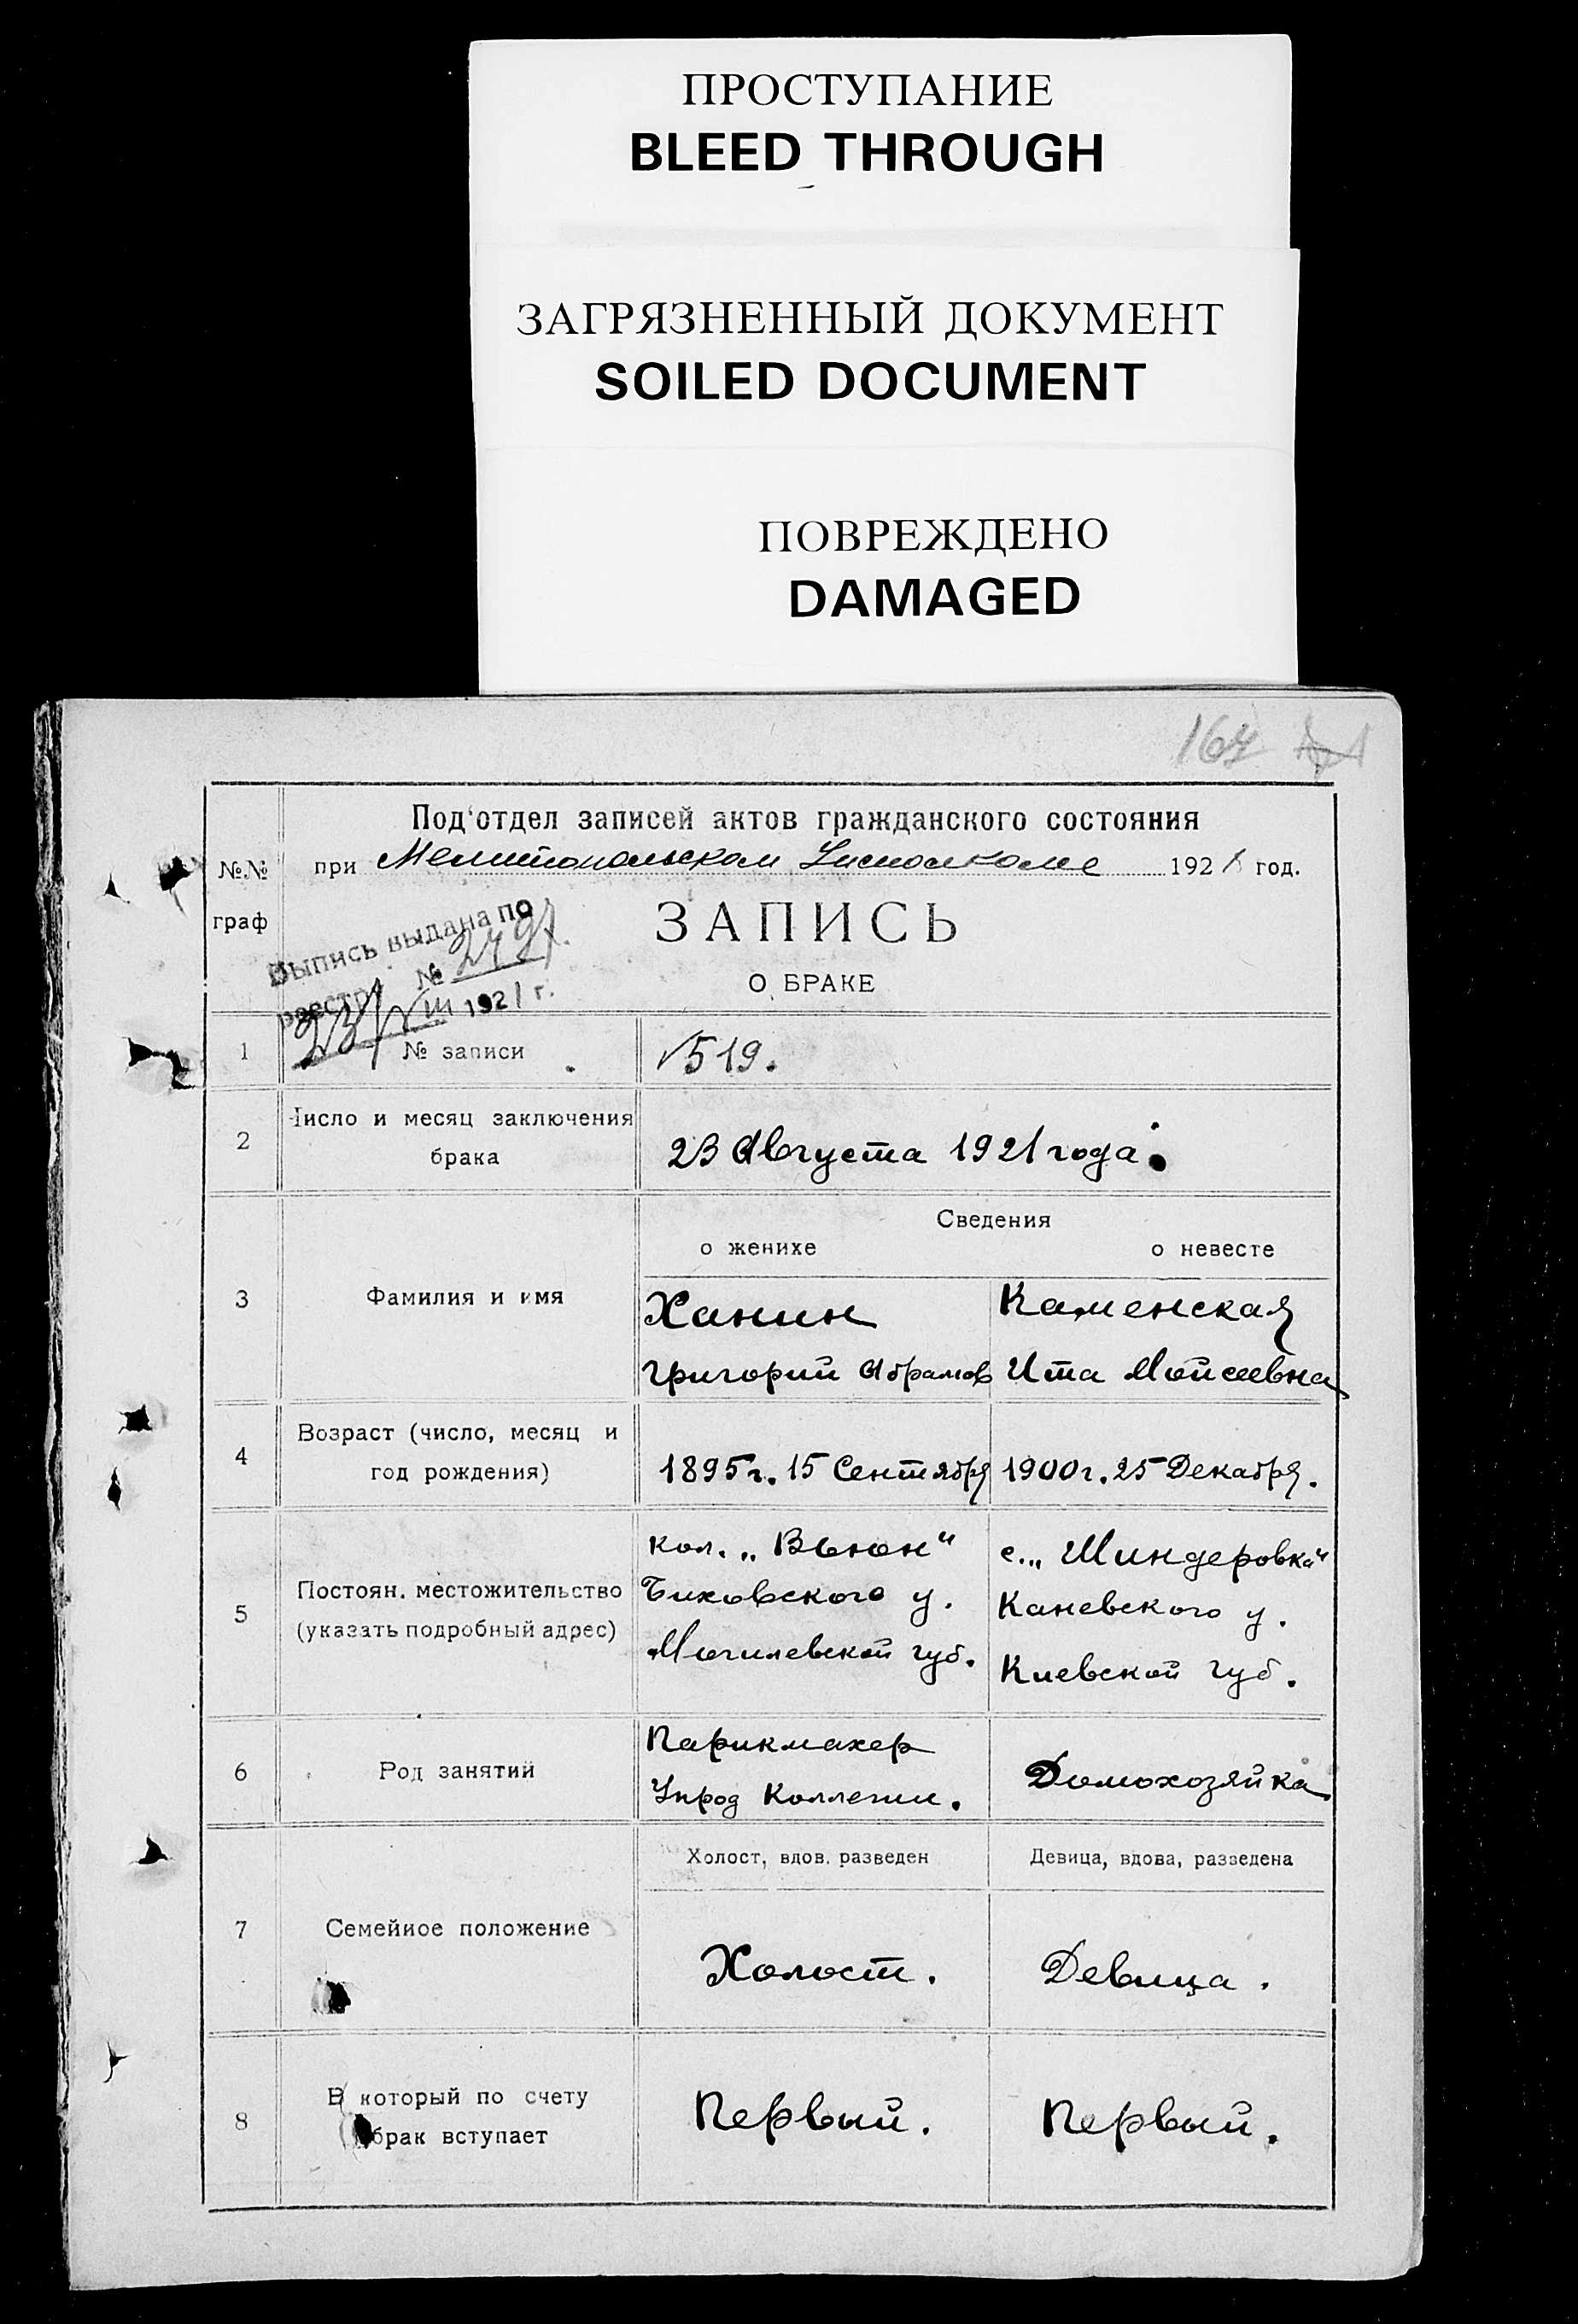 ПРОСТУПАНИЕ
BLEED THROUGH
ЗАГРЯЗНЕННЫЙ ДОКУМЕНТ
SOILED DOCUMENT
ПОВРЕЖДЕНО
DAMAGED
Под'отдел записей актов гражданского состояния
№№ граф
при Мелитопольском Исполкоме 1921 год.
ЗАПИСЬ
О БРАКЕ
Выпись выдана по
реестру №
23/VIII 1921 г.
1 № записи 519.
2 Число и месяц заключения
брака
23 Августа 1921 года.
Сведения
о женихе о невесте
3 Фамилия и имя
Ханин Каменская
Григорий Абрамов Ита Мойсеевна
4 Возраст (число, месяц и
год рождения)
1895 г. 15 Сентября 1900 г. 25 Декабря.
5 Постоян. местожительство
(указать подробный адрес)
кол. „Вьюн“ с. „Шиндеровка“
Биховского у. Каневского у.
Могилевской губ. Киевской губ.
6 Род занятий
Парикмахер Домохозяйка
Коллегии.
Холост, вдов, разведен Девица, вдова, разведена
7 Семейное положение
Холост. Девица.
8 В который по счету
брак вступает
Первый. Первый.